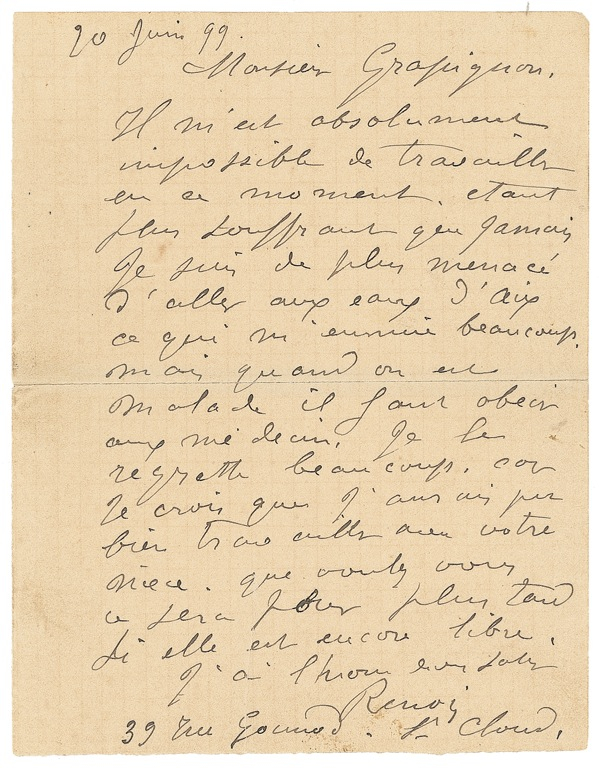 20 Juin 99.
Monsieur Grapignon.
Il m'est absolument
impossible de travailler
en ce moment. etant
plus souffrant que jamais
Je suis de plus menacé
d'aller aux eaux d'aix
ce qui m'ennuie beaucoup.
mais quand on est
malade il faut obeir
aux médecins. Je le
regrette beaucoup. car
Je crois que J'aurais pu
bien travailler avec votre
niece. que voulez vous
ce sera pour plus tard
si elle est encore libre.
J'ai l'honneur
Renoir
39 rue Gounod. St Cloud.